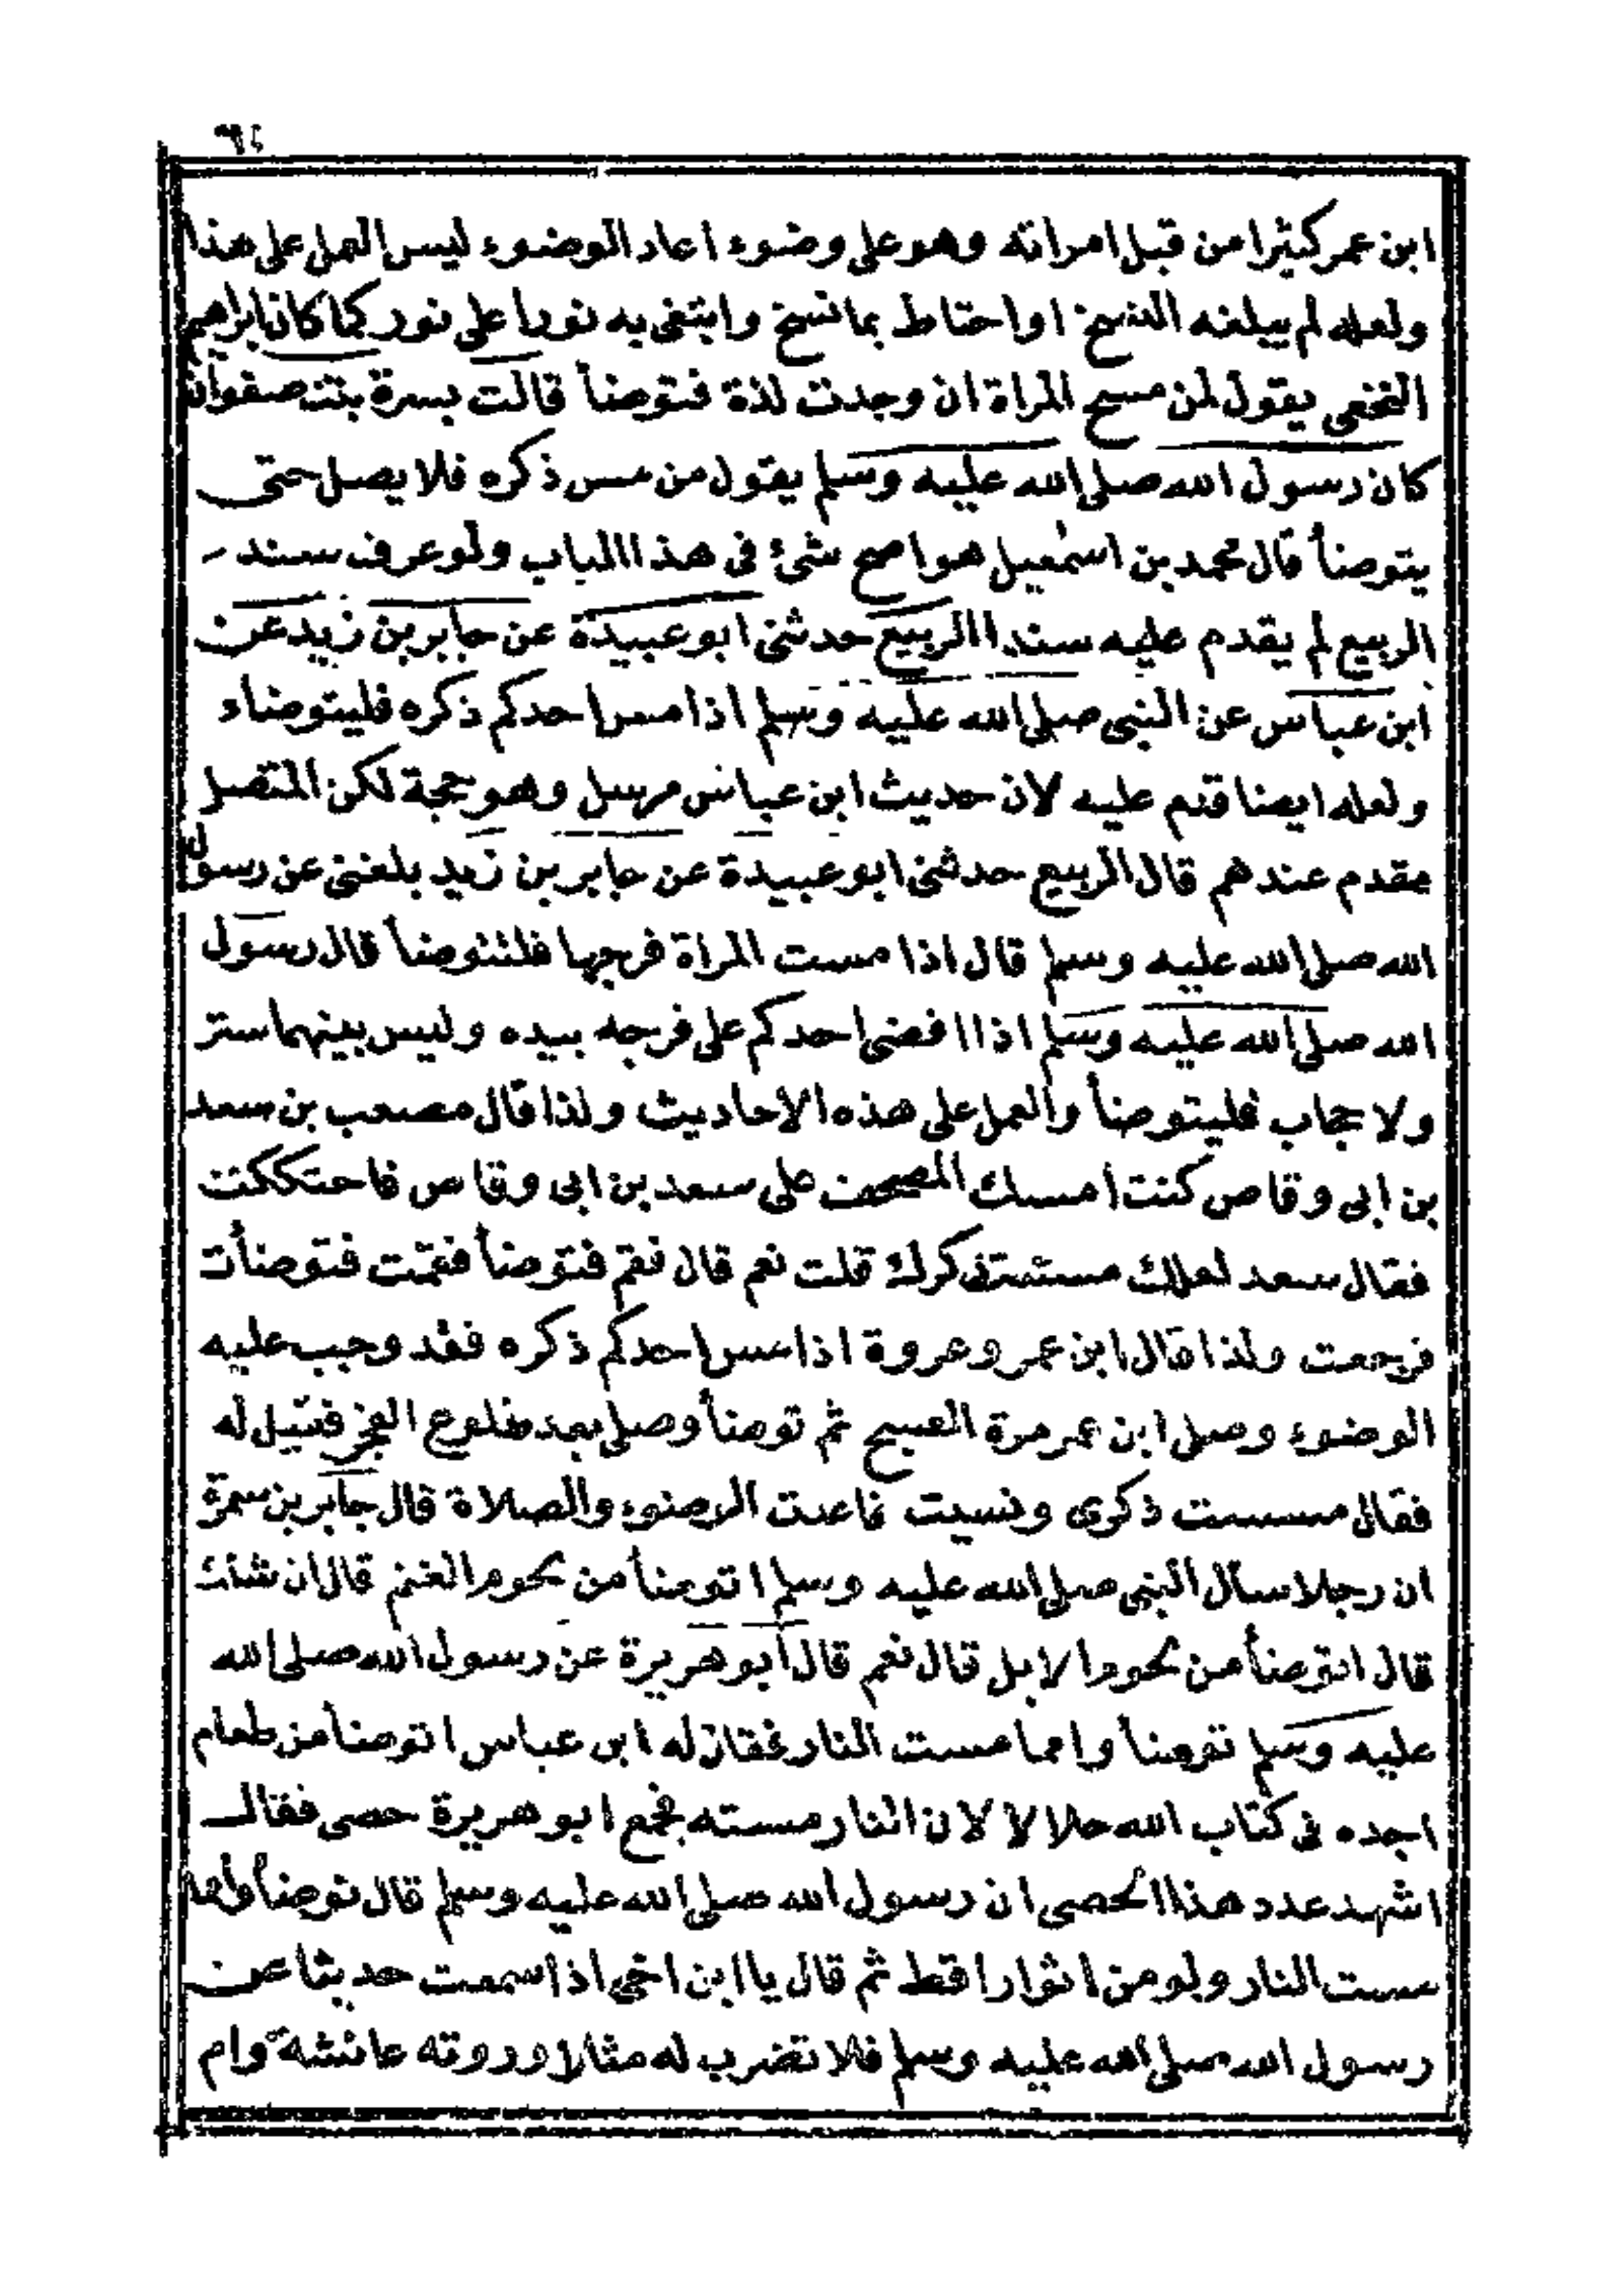 ٦٤
ابن عمر كثيرا من قبل امراته وهو على وضوء اعاد الوضوء ليس العمل على هذا
ولعله لم يبلغه النسخ او احتاط بما نسخ وابتغى به نورا على نور كما كان ابراهيم
النخعى يقول لمن مسح المراة ان وجدت لذة فتوضأ قالت بسرة بنت صفوان
كان رسول الله صلى الله عليه وسلم يقول من مس ذكره فلا يصل حتى
يتوضأ قال محمد بن اسمعيل هو اصح شئ فى هذا الباب ولو عرف سند
الربيع لم يقدم عليه سندا الربيع حدثنى ابو عبيدة عن جابر بن زيد عن
ابن عباس عن النبى صلى الله عليه وسلم اذا مس احدكم ذكره فليتوضاء
ولعله ايضا قدم عليه لان حديث ابن عباس مرسل وهو حجة لكن المتصل
مقدم عندهم قال الربيع حدثنى ابو عبيدة عن جابر بن زيد بلغنى عن رسول
الله صلى الله عليه وسلم قال اذا مست المراة فرجها فلتتوضأ قال رسول
الله صلى الله عليه وسلم اذا افضى احدكم على فرجه بيده وليس بينهما ستر
ولا حجاب فليتوضأ والعمل على هذه الاحاديث ولذا قال مصعب بن سعد
بن ابى وقاص كنت امسك المصحف على سعد بن ابى وقاص فاحتككت
فقال سعد لعلك مسست ذكرك قلت نعم قال فقم فتوضأ فقمت فتوضأت
فرجعت ولذا قال ابن عمر وعروة اذا مس احدكم ذكره فقد وجب عليه
الوضوء وصلى ابن عمر مرة الصبح ثم توضأ وصلى بعد طلوع الفجر فقيل له
فقال مسست ذكرى ونسيت فاعدت الوضوء والصلاة قال جابر بن سمرة
ان رجلا سأل النبى صلى الله عليه وسلم اتوضأ من لحوم الغنم قال ان شئت
قال اتوضأ من لحوم الابل قال نعم قال أبو هريرة عن رسول الله صلى الله
عليه وسلم توضأوا مما مست النار فقال له ابن عباس اتوضأ من طعام
اجده فى كتاب الله حلالا لان النار مسته فجمع ابو هريرة حصى فقال
اشهد عدد هذا الحصى ان رسول الله صلى الله عليه وسلم قال توضأوا مما
مست النار ولو من اثوار اقط ثم قال يا ابن اخى اذا سمعت حديثا عن
رسول الله صلى الله عليه وسلم فلا تضرب له مثالا وروته عائشة وام